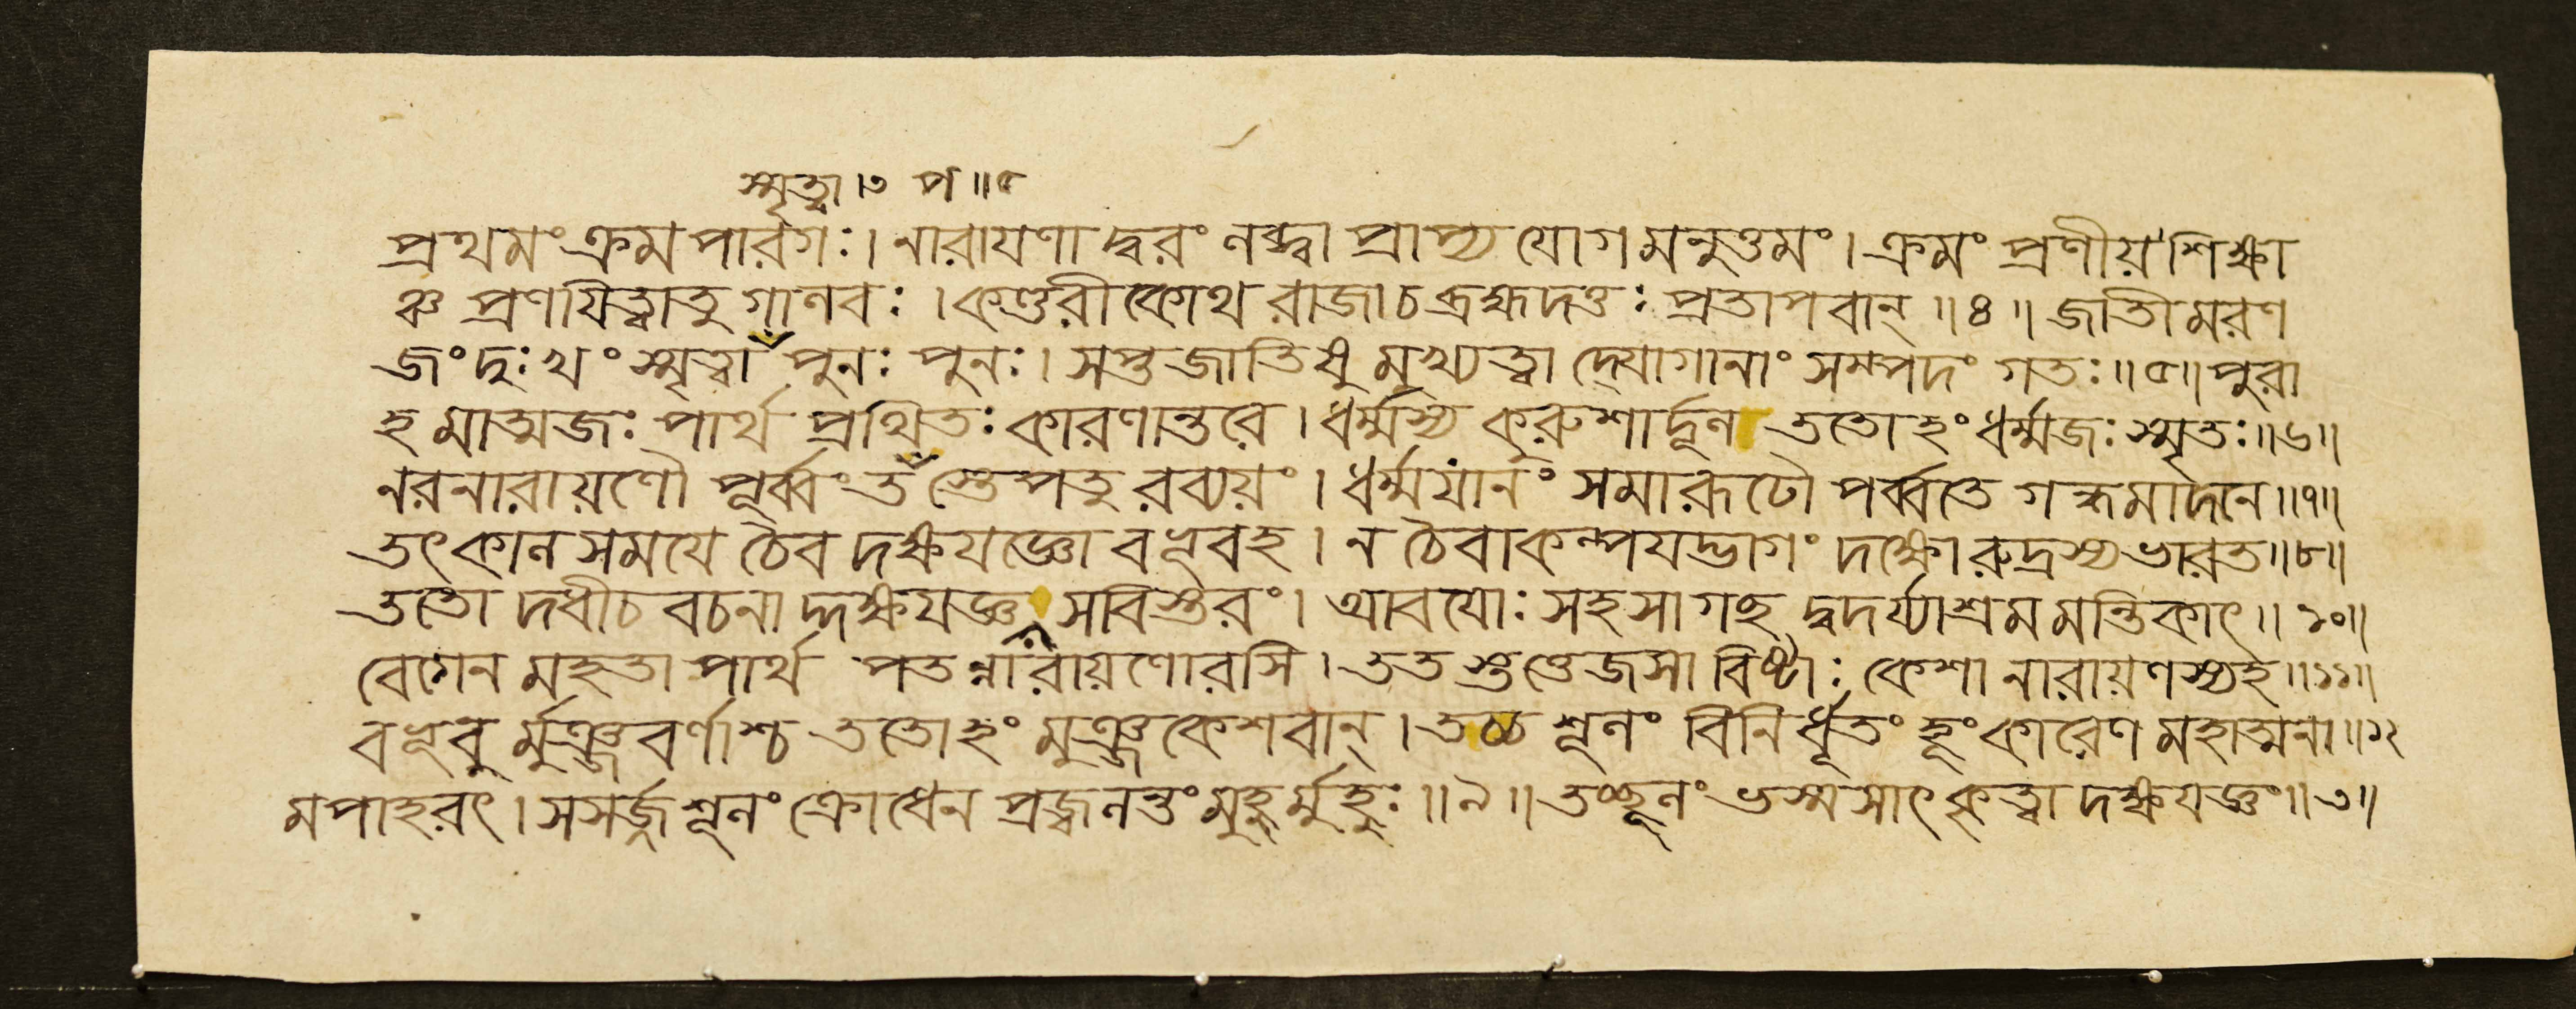 স্মৃত্বা ।৩ প ॥৫
প্রথমং ক্রমপারগঃ। নারায়ণাদ্বরং লব্ধ্বা প্রাপ্য যোগমনুত্তমং। ক্রমং প্রণীয় শিক্ষা
ঞ্চ প্রণযিত্বাতু গালবঃ । কণ্ডরীকোথ রাজা চ ব্রহ্মদত্তঃ প্রতাপবান্ ॥৪॥ জাতীমরণ
জং দুঃখং স্মৃত্বা পুনঃ পুনঃ। সপ্তজাতিষু মুখ্যত্বাদ্যোগানাং সম্পদং গতঃ॥৫॥ পুরা
হমাত্মজঃ পার্থ প্রথিতঃ কারণান্তরে । ধর্ম্মস্য কুরুশার্দূল ততোহং ধর্ম্মজঃ স্মৃতঃ॥৬॥
নরনারায়ণৌ পূর্ব্বং তপস্তেপতুরব্যয়ং । ধর্ম্মযানং সমারূঢৌ পর্ব্বতে গন্ধমাদনে॥৭॥
তৎকালসময়ে চৈব দক্ষযজ্ঞো বভূবহ । ন চৈবাকল্পযদ্ভাগং দক্ষো রুদ্রস্য ভারত॥৮॥
ততো দধীচবচনাদ্দক্ষযজ্ঞ সবিস্তরং । আবযোঃ সহসাগচ্ছদ্বদর্য্যাশ্রমমন্তিকাৎ॥ ১০॥
বেগেন মহতা পার্থ পতন্নারায়ণোরসি । ততস্তত্তেজসাবিষ্টাঃ কেশা নারায়ণস্যহ॥১১॥
বভূবুর্মুঞ্জবর্ণাশ্চ ততোহং মুঞ্জকেশবান্ । তচ্চ শূলং বিনির্ধূতং হূংকারেণ মহাত্মনা॥১২
মপাহরৎ । সসর্জ্জ শূলং ক্রোধেন প্রজ্বলন্তং মুহুর্মুহুঃ॥৯॥ তচ্ছূলং ভস্মসাৎকৃত্বা দক্ষযজ্ঞং॥৩॥